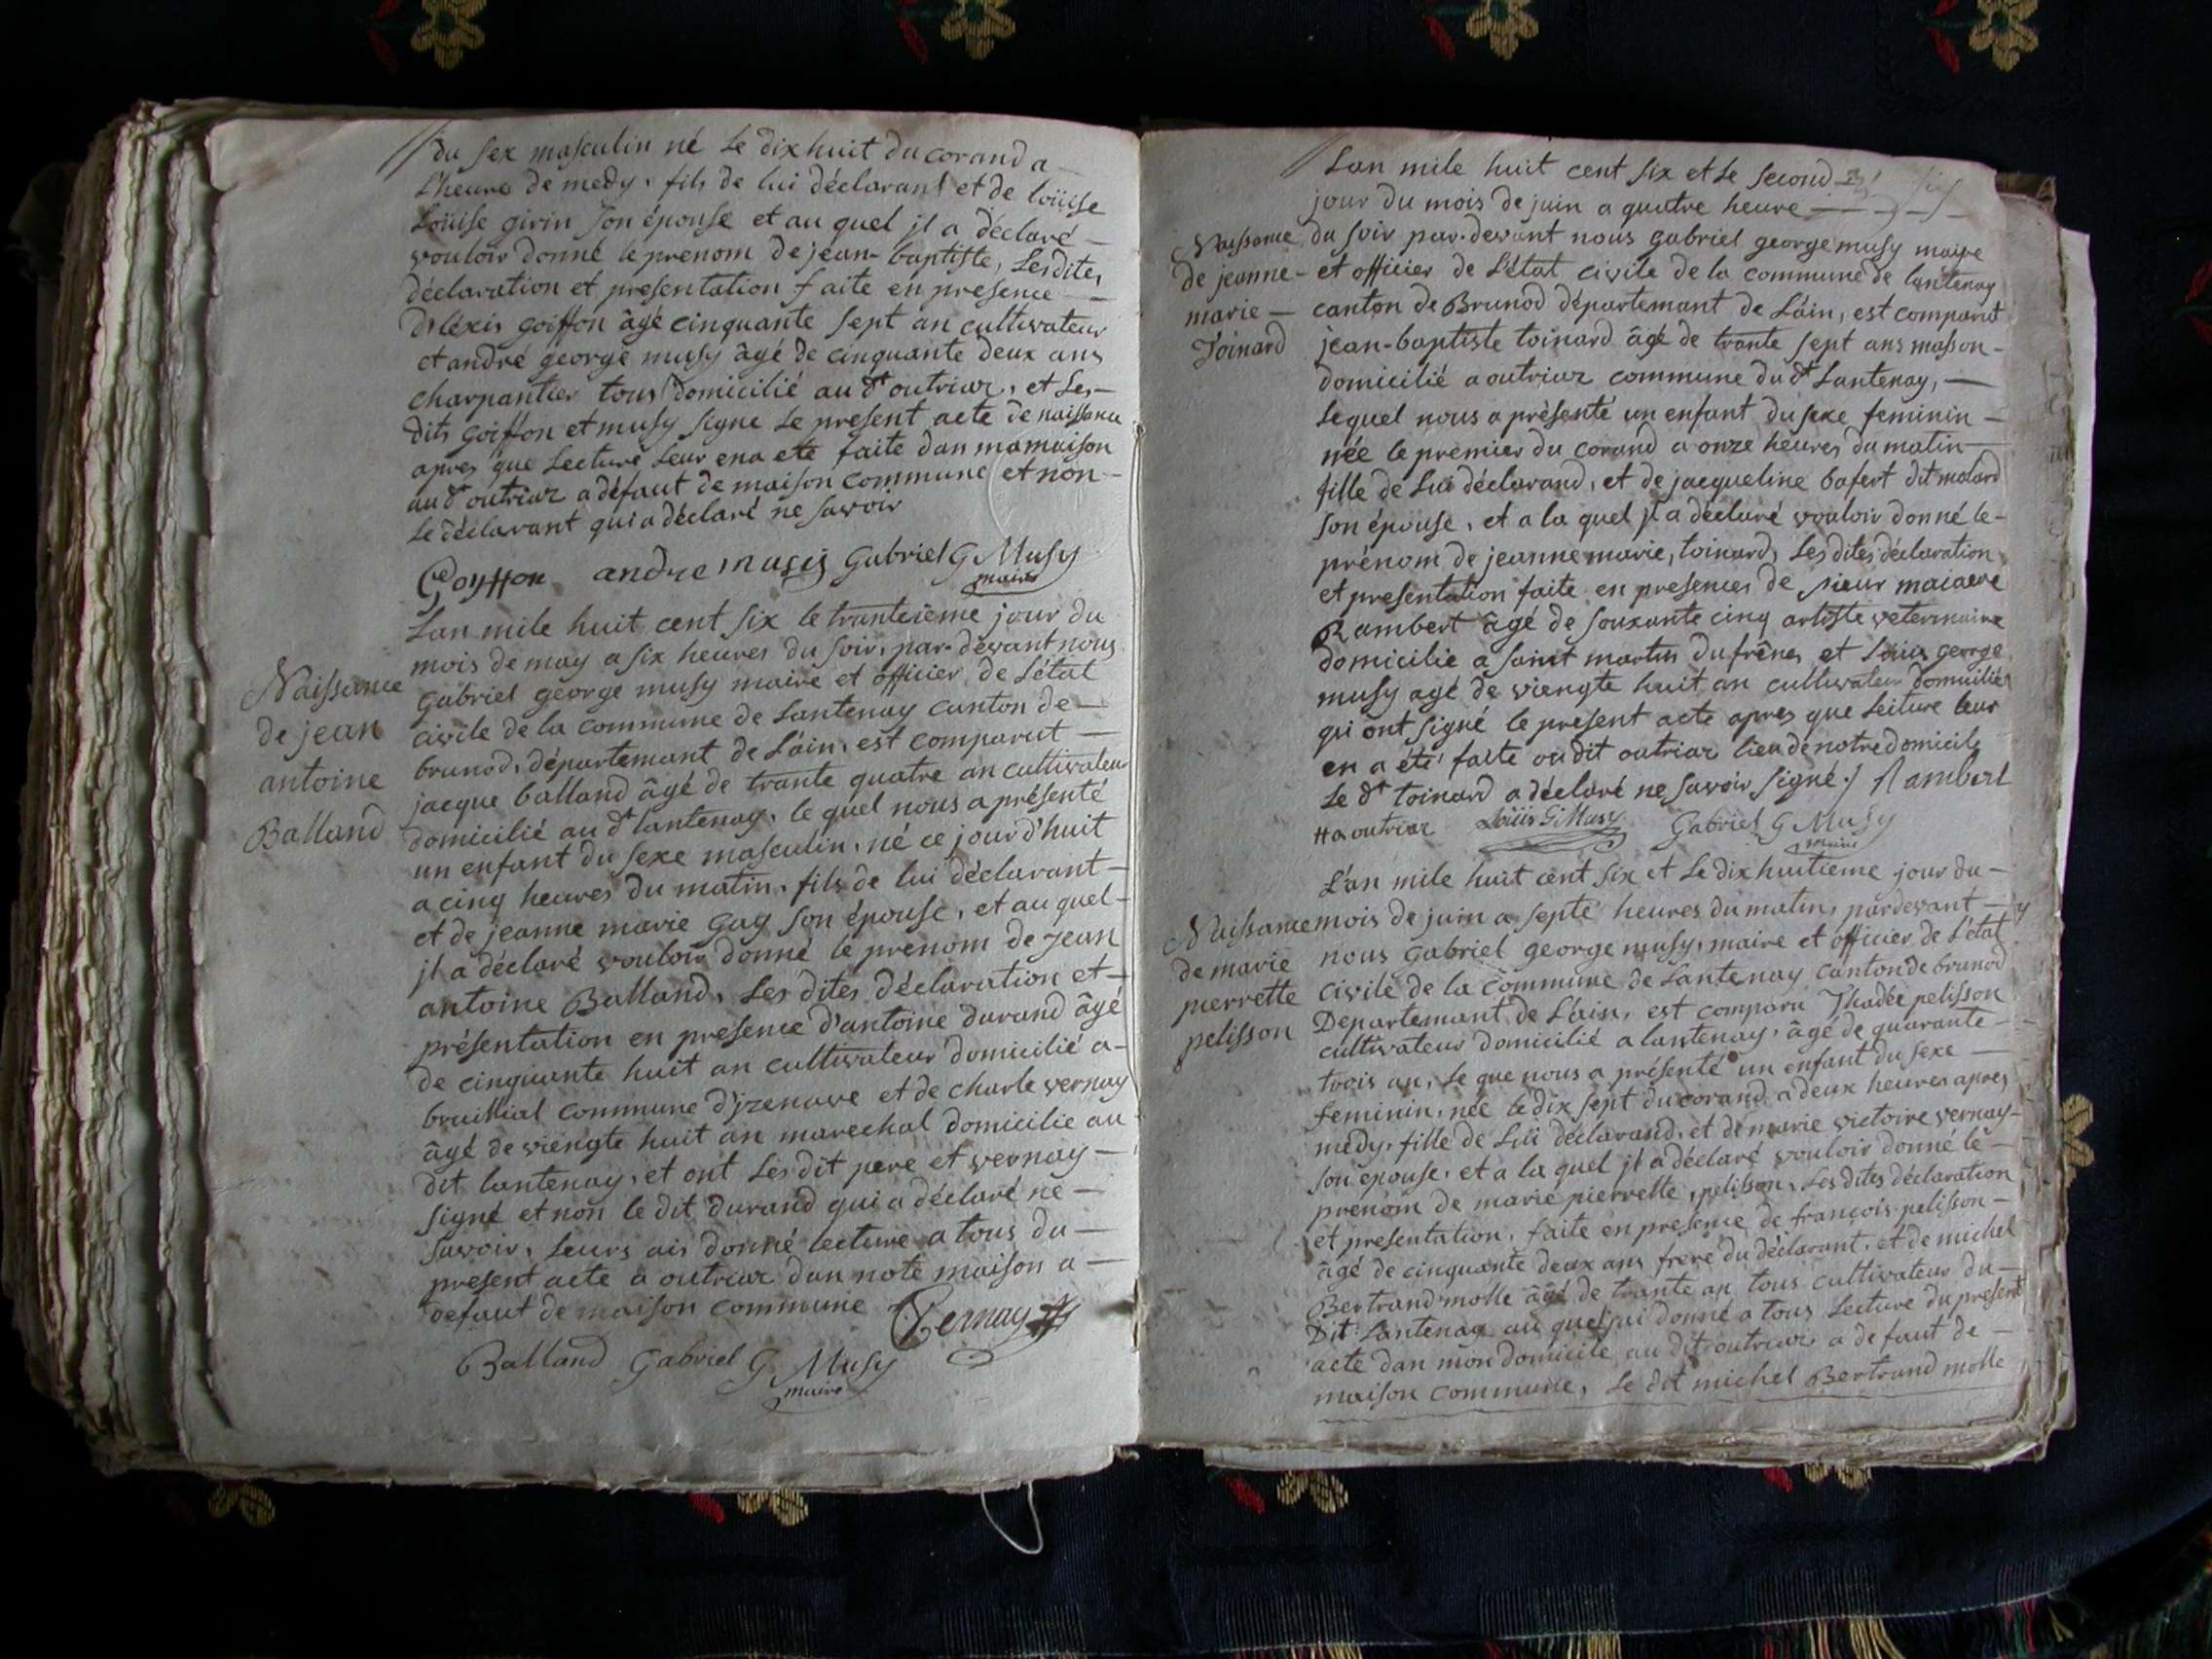 du sex masculin né le dix huit du corand a
l'heure de medy. fils de lui déclarant et de loüise
Loüise girin son épouse et au quel jl a déclaré —
vouloir donné le prenom de jean-baptiste, Lesdites
déclaration et presentation faite en presence —
d'léxis goiffon âgé cinquante sept an cultivateur
et andré george musy âgé de cinquante deux ans
charpantier tous domicilié au dt outriaz, et Les-
dits goiffon et musy signe le present acte de naissance
apres que Lecture Leur en a eté faite dan ma maison
au dt outriaz a défaut de maison commune et non-
le déclarant qui a déclaré ne savoir
Goyffon andre musy Gabriel G Musy
maire
Naissance
de jean
antoine
Balland
Lan mile huit cent six le tranteième jour du
mois de may a six heures du soir, par-devant nous
gabriel george musy maire et officier de L'état
civile de la commune de Lantenay canton de —
brunod, départemant de L'áin, est comparut —
jacque balland âgé de trante quatre an cultivateur
domicilié au dt lantenay, le quel nous a présenté
un enfant du sexe masculin, né ce jour d'huit
a cinq heures du matin, fils de lui déclarant —
et de jeanne marie guy son épouse, et au quel-
jl a déclaré vouloir donné le prenom de jean
antoine Balland, Les dites déclaration et —
présentation en presence d'antoine durand âgé
de cinquante huit an cultivateur domicilié a-
bruillial commune d'jzenave et de charle vernay
âgé de viengte huit an marechal domicilie au
dit lantenay, et ont Lesdit pere et vernay —
signé et non le dit durand qui a déclaré ne —
savoir, Leurs ais donné lecture a tous du —
present acte a outriaz dan note maison a —
defaut de maison commune Vernay
Balland Gabriel G Musy
maire
Lan mile huit cent six et le second
jour du mois de juin a quatre heure —
Naissance
de jeanne-
marie —
Toinard
du soir par-devant nous gabriel george musy maire
et officier de L'état civile de la commune de lantenay
canton de Brunod départemant de L'áin, est comparut
jean-baptiste toinard âgé de trante sept ans masson-
domicilié a outriaz commune du dt Lantenay, —
lequel nous a présenté un enfant du sexe feminin —
née le premier du corand a onze heures du matin
fille de Lui déclarand, et de jacqueline bafert dit molard
son épouse, et a la quel jl a déclaré vouloir donné le-
prénom de jeanne marie, toinard, Les dites déclaration
et presentation faite en presences de sieur
Rambert âgé de souxante cinq artiste veterinaire
domicilié a saint martin du frênes et Loüis george
musy agé de viengte huit an cultivateur domicilié
qui ont signé le present acte apres que Leiture leur
en a été faite au dit outriaz lieu de notre domicil
Le dt toinard a déclaré ne savoir signé./ Rambert
# a outriaz Loüis G Musy Gabriel G Musy
maire
L'an mile huit cent six et Le dix huitieme jour du —
Naissance
de marie
pierrette
pelisson
mois de juin a septe heures du matin, pardevant —
nous gabriel george musy, maire et officier de L'état
civile de la commune de Lantenay canton de brunod
Departemant de L'áin, est comparu Thadée pelisson
cultivateur domicilié a lantenay, âgé de quarante —
trois an, le que nous a présenté un enfant du sexe —
feminin, née le dix sept du corand a deux heures apres
médy, fille de Lui déclarand, et de marie victoire vernay-
son épouse, et a la quel jl a déclaré vouloir donné le —
prénom de marie pierrette, pelisson, Les dites déclaration
et presentation, faite en presence de françois pelisson —
âgé de cinquante deux ans frere du déclarant, et de michel
Bertrand molle âgé de trante an tous cultivateur du —
Dit Lantenay au quel jai donné a tous Lecture du present
acte dan mon domicile au dit outriaz a defaut de —
maison commune, Le dit michel Bertrand molle